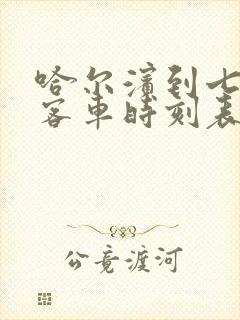 哈尔滨到七
客车时刻表
公竟渡河